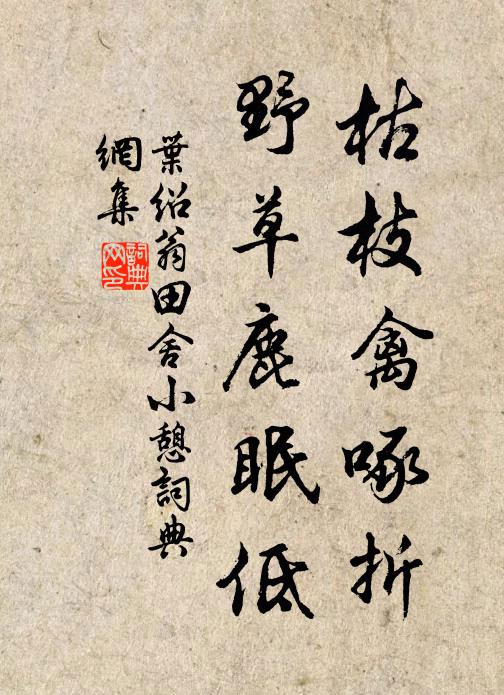 枯枝禽啄折
野草鹿眠低
葉紹翁田舍小憩詞典
網集
詞典
网印